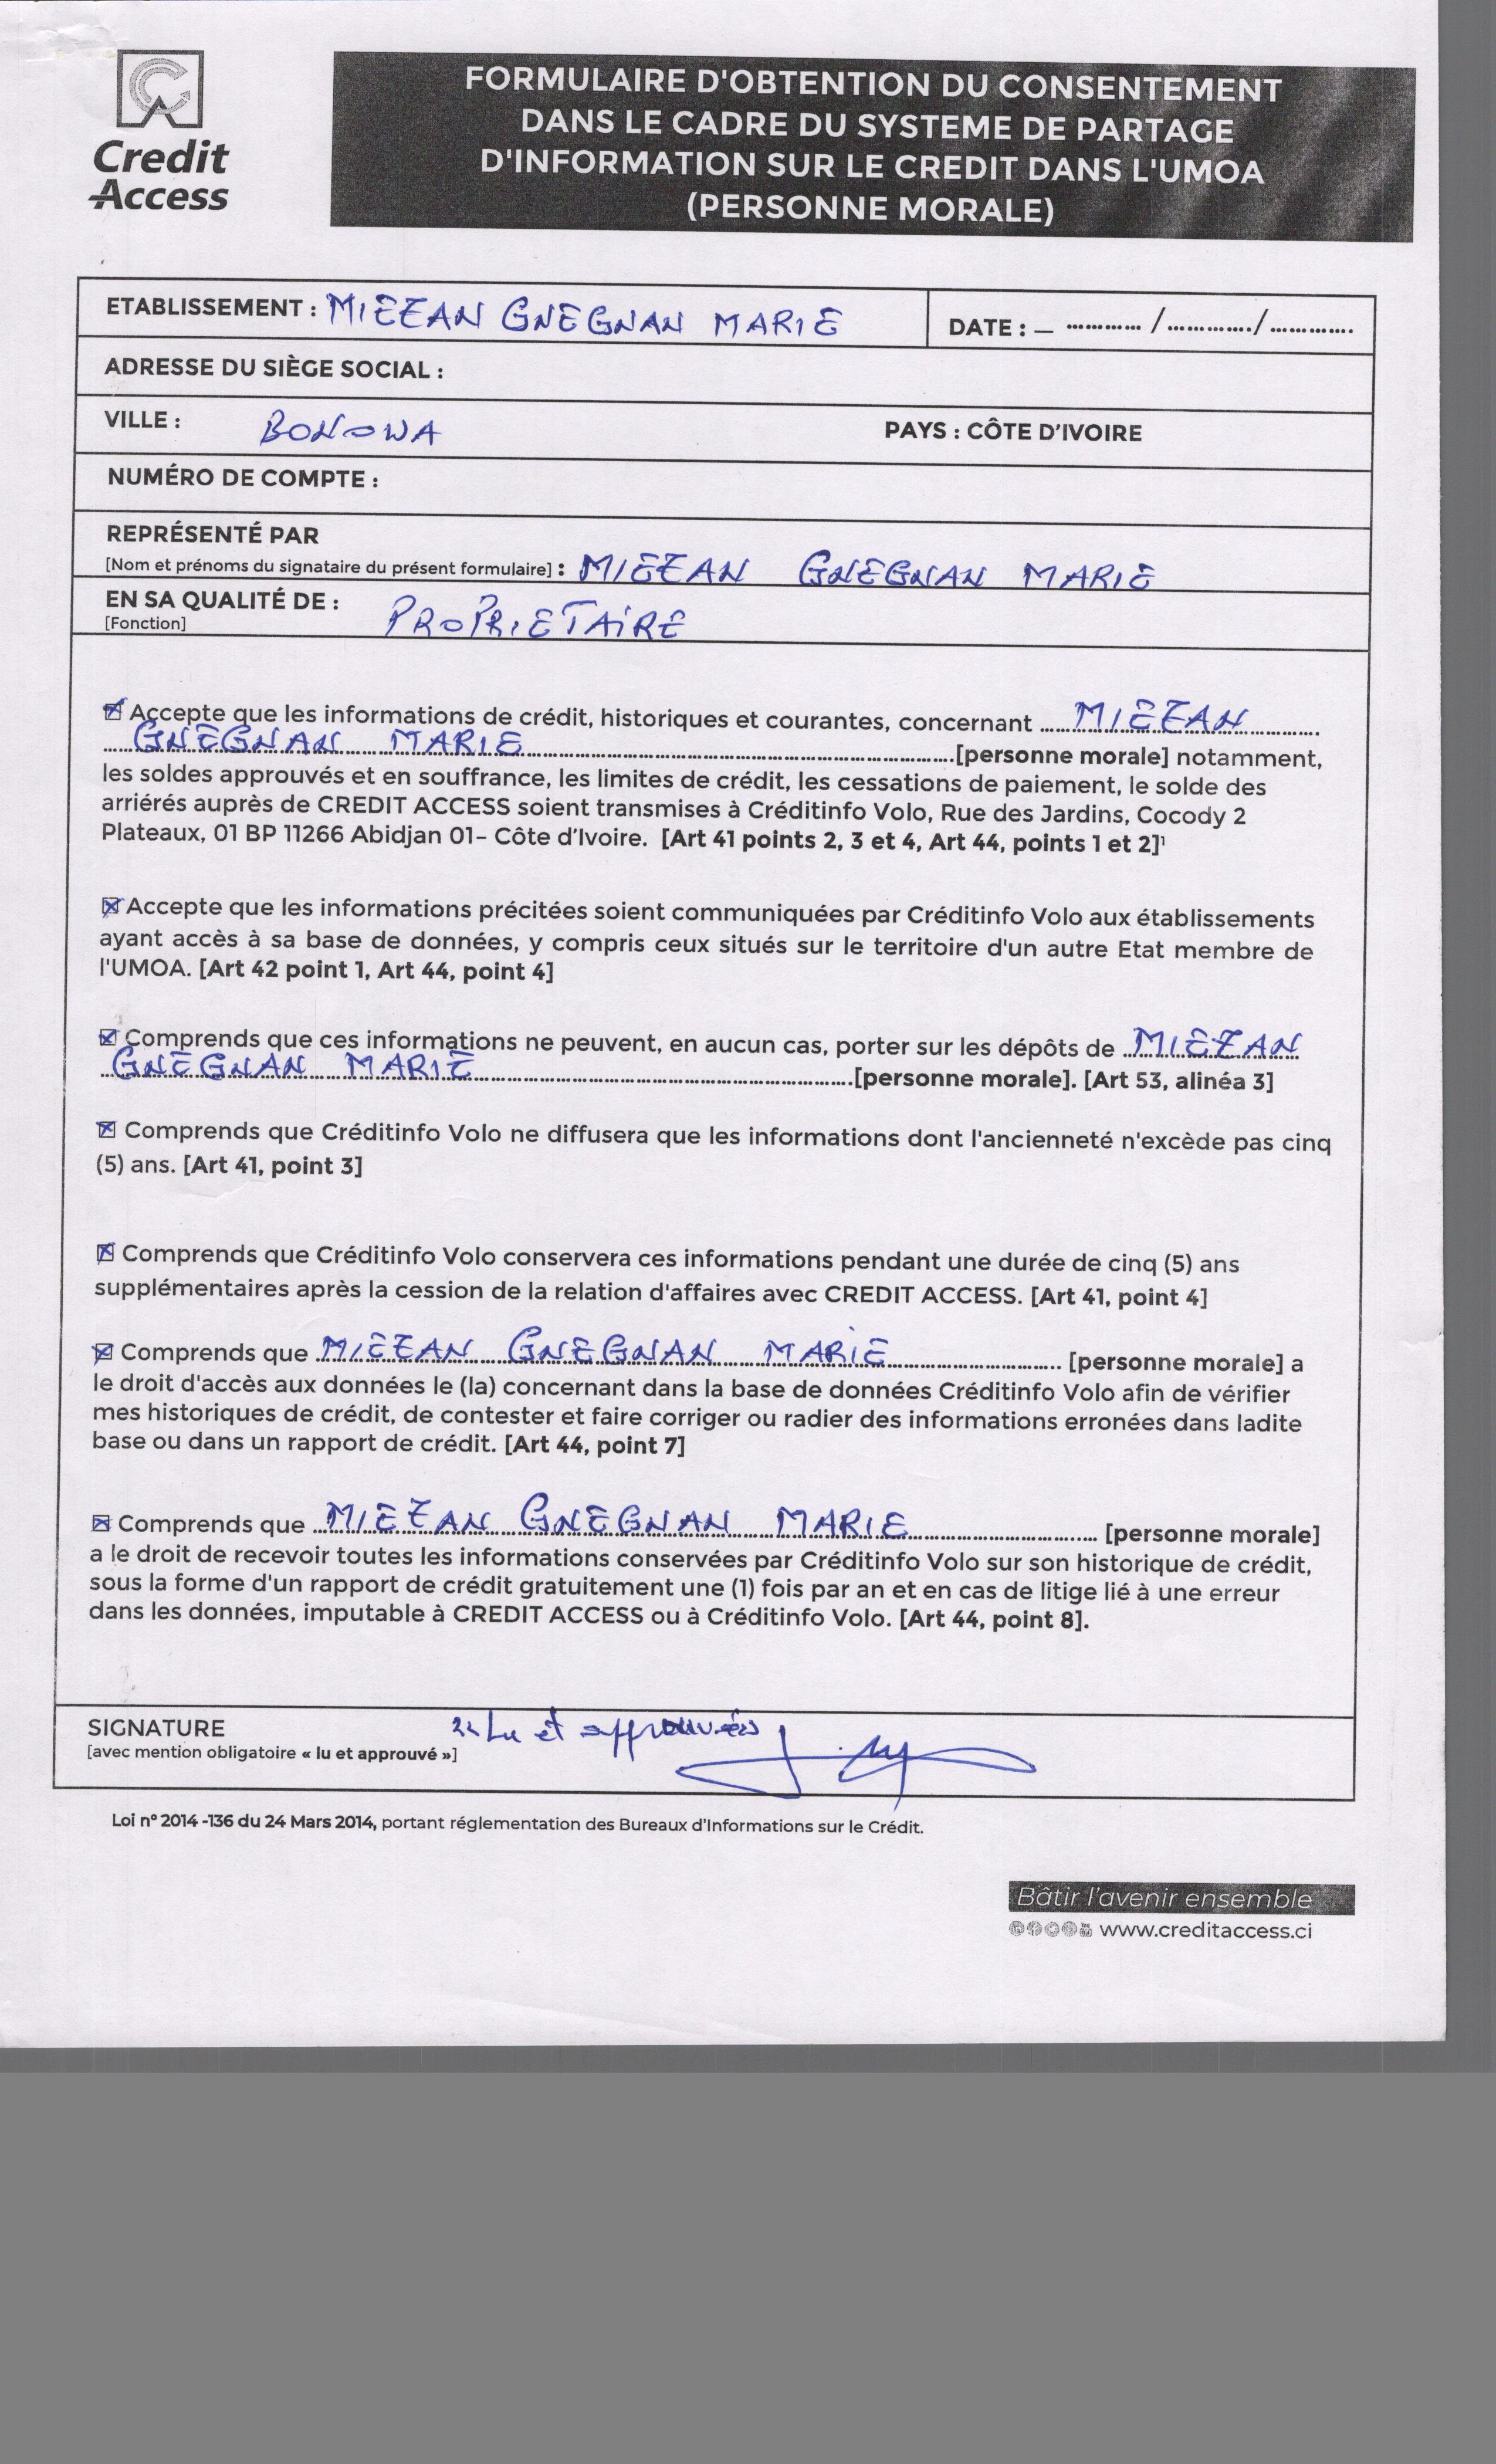 Credit
Access
FORMULAIRE D'OBTENTION DU CONSENTEMENT
DANS LE CADRE DU SYSTEME DE PARTAGE
D'INFORMATION SUR LE CREDIT DANS L'UMOA
(PERSONNE MORALE)
ETABLISSEMENT : MIEZAN GNEGNAN MARIE
DATE : – ............ /............./.............
ADRESSE DU SIÈGE SOCIAL :
VILLE : BONOUA PAYS : CÔTE D'IVOIRE
NUMÉRO DE COMPTE :
REPRÉSENTÉ PAR
[Nom et prénoms du signataire du présent formulaire] : MIEZAN GNEGNAN MARIE
EN SA QUALITÉ DE : PROPRIETAIRE
[Fonction]
☒ Accepte que les informations de crédit, historiques et courantes, concernant MIEZAN
GNEGNAN MARIE [personne morale] notamment,
les soldes approuvés et en souffrance, les limites de crédit, les cessations de paiement, le solde des
arriérés auprès de CREDIT ACCESS soient transmises à Créditinfo Volo, Rue des Jardins, Cocody 2
Plateaux, 01 BP 11266 Abidjan 01– Côte d'Ivoire. [Art 41 points 2, 3 et 4, Art 44, points 1 et 2]¹
☒ Accepte que les informations précitées soient communiquées par Créditinfo Volo aux établissements
ayant accès à sa base de données, y compris ceux situés sur le territoire d'un autre Etat membre de
l'UMOA. [Art 42 point 1, Art 44, point 4]
☒ Comprends que ces informations ne peuvent, en aucun cas, porter sur les dépôts de MIEZAN
GNEGNAN MARIE [personne morale]. [Art 53, alinéa 3]
☒ Comprends que Créditinfo Volo ne diffusera que les informations dont l'ancienneté n'excède pas cinq
(5) ans. [Art 41, point 3]
☒ Comprends que Créditinfo Volo conservera ces informations pendant une durée de cinq (5) ans
supplémentaires après la cession de la relation d'affaires avec CREDIT ACCESS. [Art 41, point 4]
☒ Comprends que MIEZAN GNEGNAN MARIE [personne morale] a
le droit d'accès aux données le (la) concernant dans la base de données Créditinfo Volo afin de vérifier
mes historiques de crédit, de contester et faire corriger ou radier des informations erronées dans ladite
base ou dans un rapport de crédit. [Art 44, point 7]
☒ Comprends que MIEZAN GNEGNAN MARIE [personne morale]
a le droit de recevoir toutes les informations conservées par Créditinfo Volo sur son historique de crédit,
sous la forme d'un rapport de crédit gratuitement une (1) fois par an et en cas de litige lié à une erreur
dans les données, imputable à CREDIT ACCESS ou à Créditinfo Volo. [Art 44, point 8].
SIGNATURE Lu et approuvés
[avec mention obligatoire « lu et approuvé »]
Loi n° 2014 -136 du 24 Mars 2014, portant réglementation des Bureaux d'Informations sur le Crédit.
Bâtir l'avenir ensemble
www.creditaccess.ci